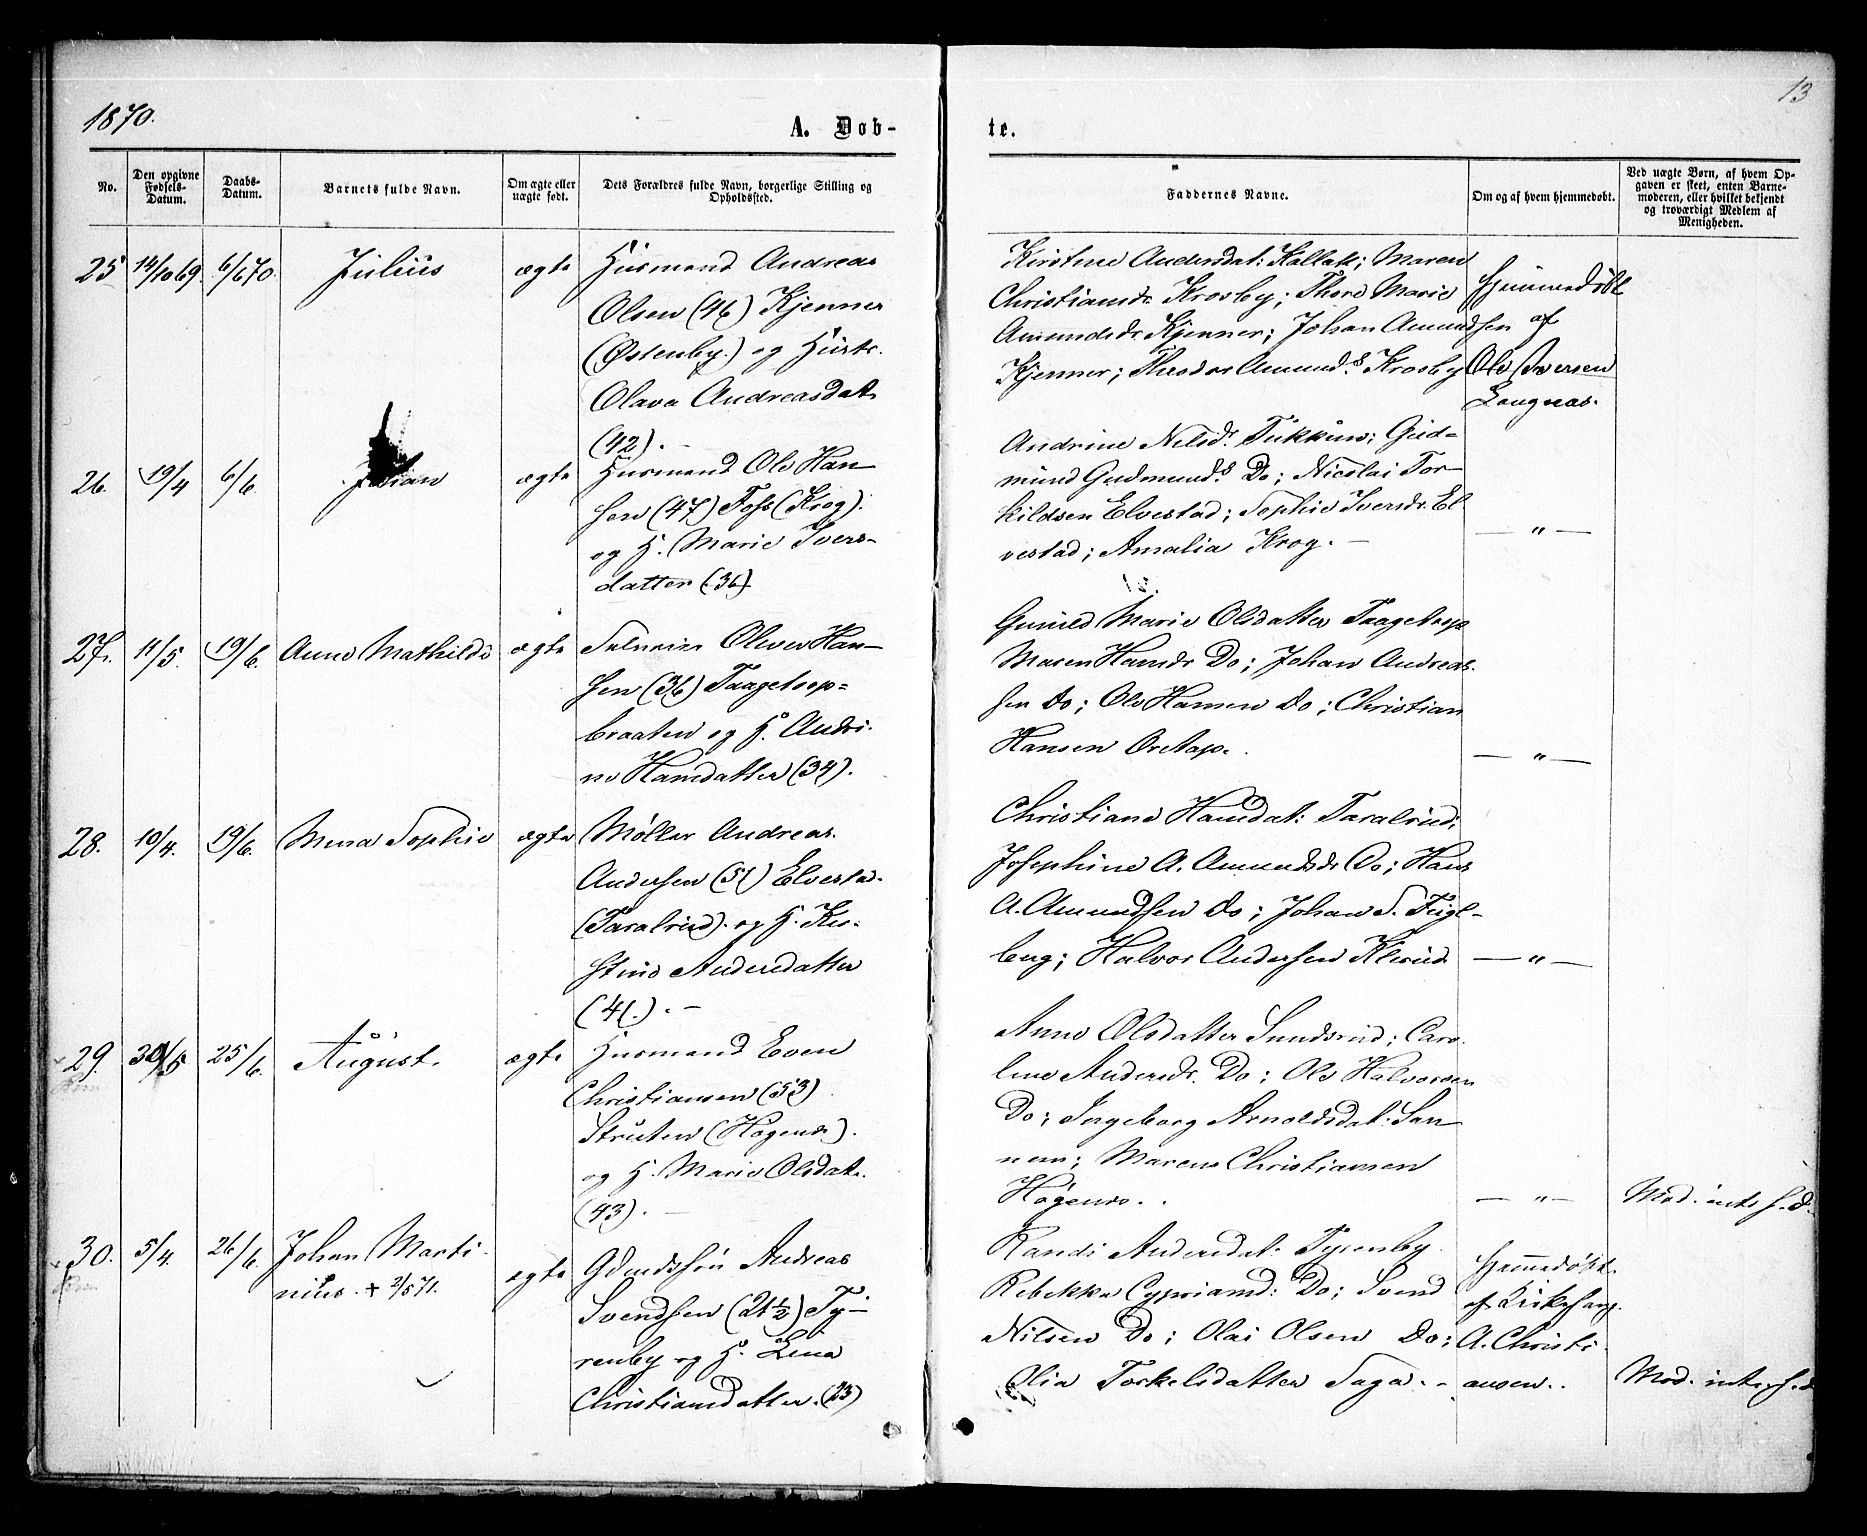 1870.
13
A. Døb-
te.
No.
Den opgivne Fødsels-Datum.
Daabs-Datum.
Barnets fulde Navn.
Om ægte eller uægte født.
Dets Forældres fulde Navn, borgerlige Stilling og Opholdssted.
Faddernes Navne.
Om og af hvem hjemmedøbt.
Ved uægte Børn, af hvem Op-
gaven er skeet, enten Barne-
moderen, eller hvilket bekjendt
og troværdigt Medlem af
Menigheden.
25 14/10 69. 6/6 70. Julius ægte Husmand Andreas
Olsen (46) Kjenner
(Østenby.) og Hustr.
Olava Andreasdat.
(42).
Kirstine Andersdat: Kallak; Maren
Christiansdr Krosby; Thore Marie
Amundsdr Kjenner; Johan Amundsen
Kjenner; Theodor Amunds. Krosby
Hjemmedøbt
af
Ole Iversen
Langnæs.
26. 19/4 6/6. Johan ægte Husmand Ole Han-
sen (47) Foss (Krog).
og H. Marie Ivers-
datter (36)
Andrine Nilsdr. Tukkuus; Gud-
mund Gudmunds. Do; Nicolai Tor-
kildsen Elvestad; Sophie Iversdr. El-
vestad; Amalia Krog. —
— " —
27. 11/5. 19/6. Anne Mathilde ægte Selveier Oliver Han-
sen (36) Taagetorp-
braaten og H. Andri-
ne Hansdatter (34).
Gunild Marie Olsdatter Taagetorp
Maren Hansdr Do; Johan Andreas-
sen Do; Ole Hansen Do; Christian
Hansen Oretop.
— " —
28. 10/4. 19/6. Mena Sophie ægte Møller Andreas
Andersen (51) Elvestad
(Taralrud). og H. Kir-
stine Andersdatter
(41.). —
Christiane Hansdat: Taralrud;
Josephine A. Amundsdr Do; Hans
A. Amundsen Do; Johan S. Fugl-
berg; Halvor Andersen Klerud
— " —
29. 30/5 25/6. August. ægte Husmand Even
Christiansen (53)
Struten (Høgenæs).
og H. Marie Olsdat.
(43). —
Anne Olsdatter Sundsrud; Caro-
line Andersdr. Do; Ole Halvorsen
Do; Ingeborg Arnoldsdat: San-
nem; Maren Christiansen
Høgenæs.
— " —
Mod. intr. s. d.
30. 5/4. 26/6. Johan Marti-
nius. + 2/5 71.
ægte Gdmdssøn Andreas
Svendsen (21½) Ty-
renby og H. Lina
Christiansdatter. (23)
Randi Andersdat: Tyrenby
Rebekka Cypriansd: Do; Svend
Nilsen Do; Olai Olsen Do;
Olia Torkelsdatter Saga. -
Hjemmedøbt
af Kirkesang.
A. Christi-
ansen.
Mod. intr. s. d.